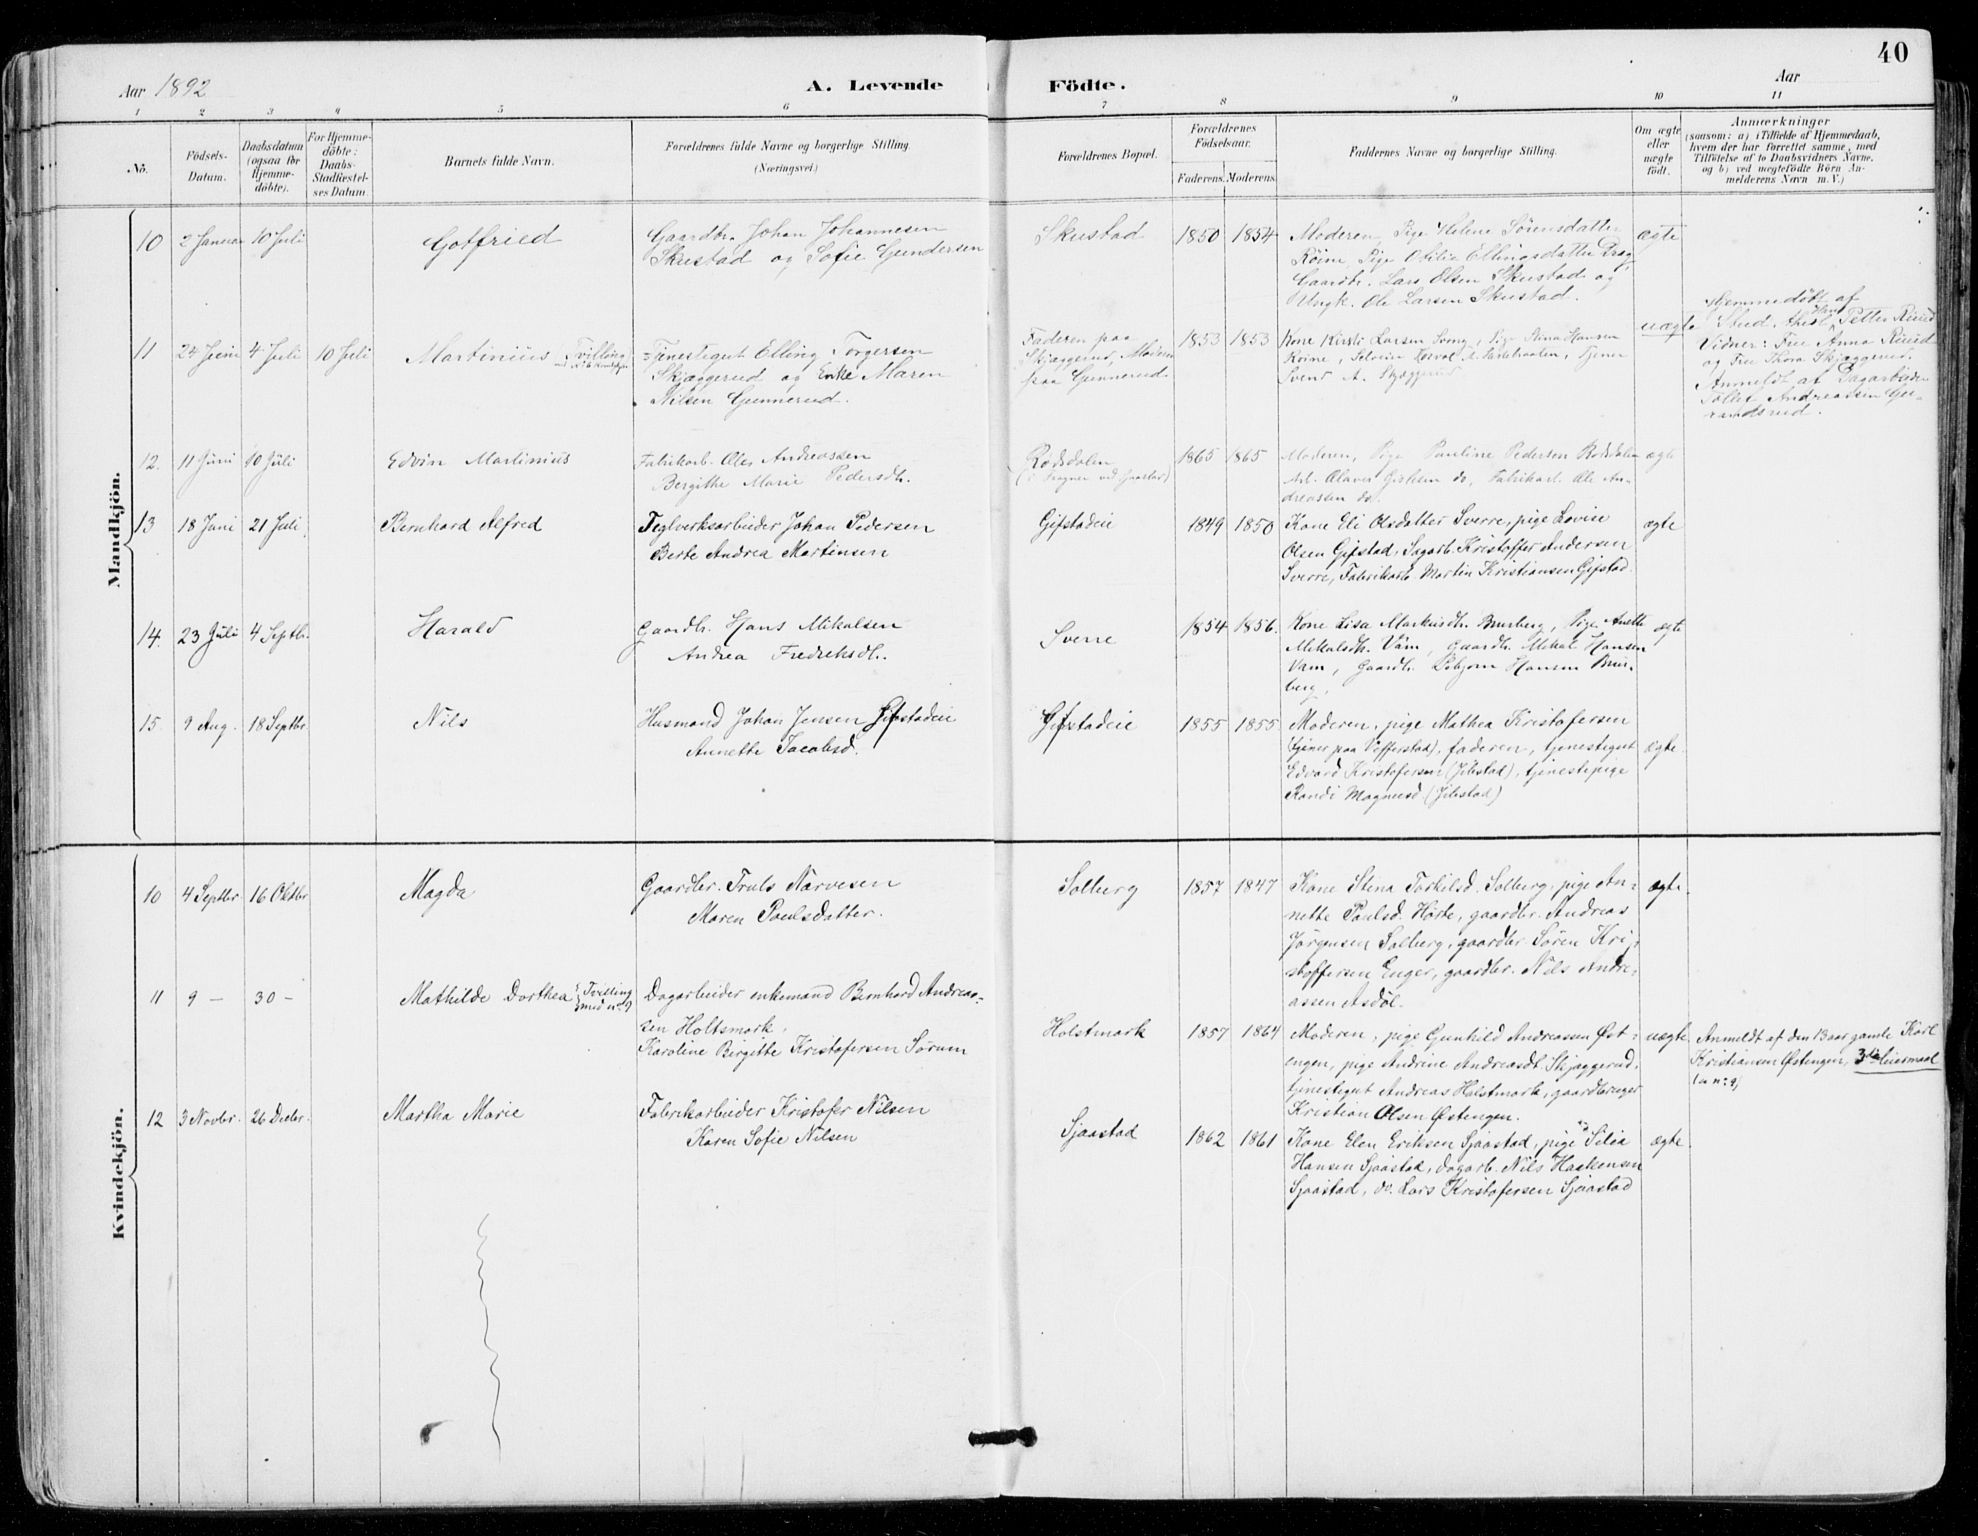 40
Aar 1892
A. Levende Födte.
Aar
1 2 3 4 5 6 7 8 9 10 11
No.
Födsels-
Datum.
Daabsdatum
(ogsaa for
Hjemme-
döbte).
For Hjemme-
döbte:
Daabs-
Stadfæstel-
ses Datum.
Barnets fulde Navn.
Forældrenes fulde Navne og borgerlige Stilling.
(Næringsvei)
Forældrenes Bopæl.
Forældrenes
Födselsaar.
Faderens. Moderens.
Faddernes Navne og borgerlige Stilling.
Om ægte
eller
uægte
födt.
Anmærkninger
(saasom: a) i Tilfælde af Hjemmedaab,
hvem der har forrettet samme, med
Tilföielse af to Daabsvidners Navne,
og b) ved uægtefödte Börn An-
melderens Navn m. V.)
Mandkjön.
10 2 Januar 10 Juli
Gotfried
Gaardbr. Johan Johannesen
Skustad og Sofie Gundersen
Skustad
1850 1854
Moderen, Pige Helene Sörensdatter
Röine, Pige Otilie Ellingsdatter
Gaardbr. Lars Olsen Skustad og
Ungk. Ole Larsen Skustad.
ægte
11 24 Juni 4 Juli 10 Juli
Martinius Tvilling
Tjenestegut Elling Torgersen
Skjæggerud og Enke Maren
Nilsen Gunnerud.
Faderen paa
Skjæggerud, Moderen
paa Gunnerud.
1853 1853
Kone Kirsti Larsen, Pige Stina Hansen
Roine, tjener
Svend A. Skjæggerud
uægte
Hjemmedöbt af
Stud. Hans Petter Ruud
Vidner: Fru Anna Ruud
og Fru Thora Skjæggerud.
Anmeldt af Dagarbeider
Andreassen
12. 11 Juni 10 Juli
Edvin Martinius
Fabrikarb. Ole Andreassen
Bergithe Marie Pedersdtr.
Rødsdalen
1865 1865
Moderen, Pige Pauline Pedersen Rodsdalen
Arb. Olaves do, Fabrikarb. Ole An-
dreassen do.
ægte
13 18 Juni 21 Juli
Bernhard Alfred
Teglverksarbeider Johan Pedersen
Berte Andrea Martinsen
Gifstadeie
1849 1850
Kone Eli Olsdatter Sverre, pige Lovise
Olsen Gifstad, Sagarb. Kristoffer Andersen
Sverre, Fabrikarb. Martin Kristiansen Gifstad.
ægte
14. 23 Juli 4 Septb.
Harald
Gaardbr. Hans Mikalsen
Andrea Fredriksdtr.
Sverre
1854 1856.
Kone Lisa Markusdtr. Burberg, Pige Anette
Mikalsdtr. Vam, Gaardbr. Mikal Hansen
Vam, Gaardbr. Hansen Bur-
berg.
ægte
15. 9 Aug. 18 Septbr.
Nils
Husmand Johan Jensen Gifstadeie
Annette Jacobsd.
Gifstadeie
1855 1855.
Moderen, pige Mathea Kristofersen
(tjener paa Vefferstad), faderen, tjenestegut
Edvard Kristofersen (Jibstad), tjenestepige
Randi Magnusd (Jibstad)
ægte.
Kvindekjön.
10 4 Septbr. 16 Oktbr
Magda
Gaardbr. Truls Narvesen
Maren Paulsdatter.
Solberg
1857 1847
Kone Stina Torkilsd. Solberg, pige An-
nette Paulsd. Hørte, gaardbr. Andreas
Jørgensen Solberg, gaardbr. Søren Kri-
stoffersen Enger, gaardbr. Nils Andre-
assen Asdøl.
ægte.
11 9 - 30 -
Mathilde Dorthea Tvilling
med nr. 9
Dagarbeider enkemand Bernhard Andreas-
sen Holtsmark,
Karoline Birgitte Kristofersen Sørum
Holstmark
1857 1864
Moderen, pige Gunhild Andreassen Øst-
engen, pige Andrine Andreasdt. Skjæggerud,
tjenestegut Andreas Holstmark, gaardbruger
Kristian Olsen Østengen.
uægte.
Anmeldt af den 13 aar gamle Karl
Kristiansen Østengen, 3die leiermaal
(a nr. 9)
12 3 Novbr. 26 Decbr.
Martha Marie
Fabrikarbeider Kristofer Nilsen
Karen Sofie Nilsen
Sjaastad
1862 1861
Kone Elen Eriksen Sjaastad, pige Silia
Hansen Sjaastad, dagarb. Nils Haakensen
Sjaastad, do. Lars Kristofersen Sjaastad
ægte.